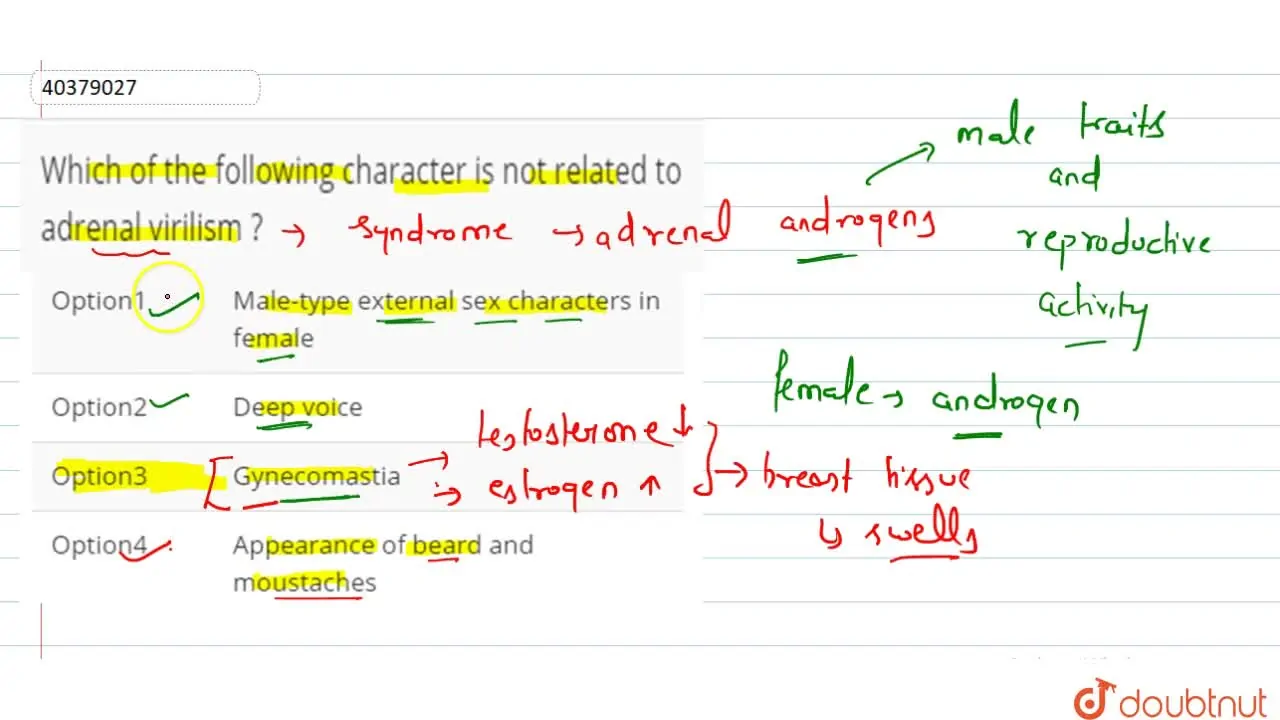 40379027
Which of the following character is not related to
adrenal virilism ? → syndrome → adrenal androgens
male traits
and
reproductive
activity
Option1 Male-type external sex characters in
female
female → androgen
Option2 Deep voice
testosterone ↓
Option3 Gynecomastia → estrogen ↑ → breast tissue
↳ swells
Option4 Appearance of beard and
moustaches
doubtnut